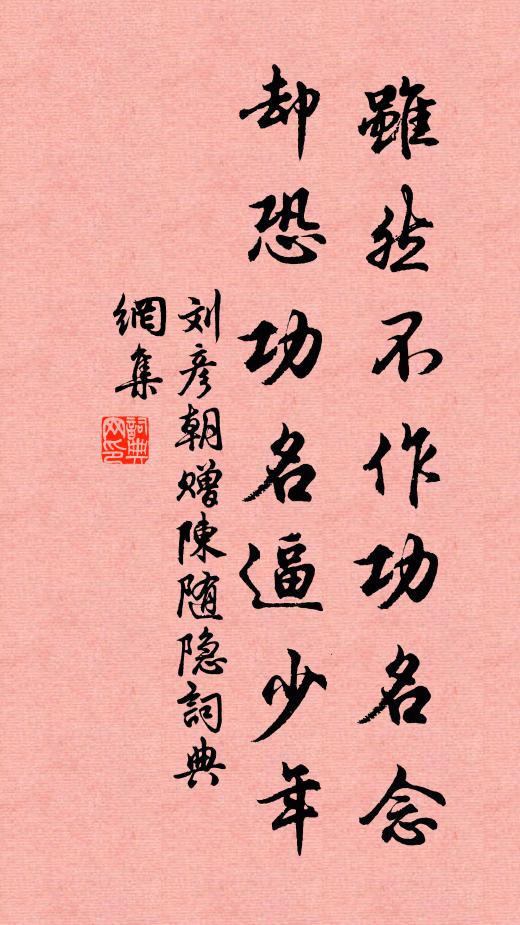 雖然不作功名念
却恐功名逼少年
刘彦朝赠陳随隐詞典
網集
詞典网印